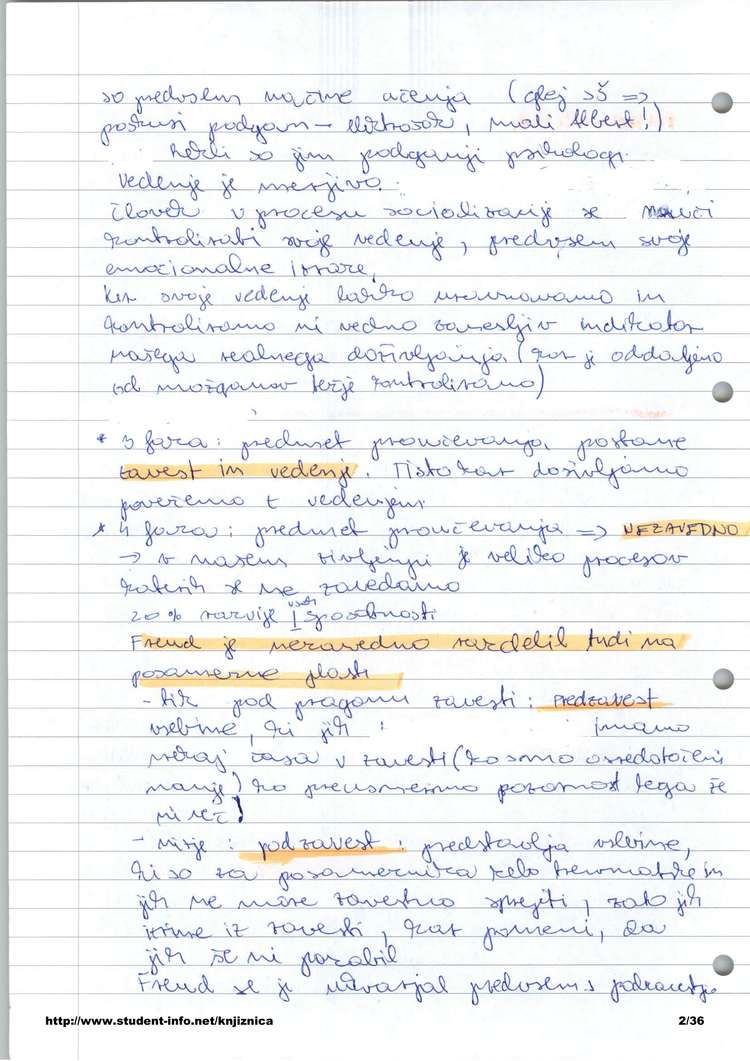 so predvsem načine učenja (glej SŠ =>
poskusi podgan - elektrošok, mali Albert!)
Rekli so jim podganji psihologi.
Vedenje je merljivo.
Človek v procesu socializacije se nauči
kontrolirati svoje vedenje, predvsem svoje
emocionalne izraze.
Ker svoje vedenje lahko uravnavamo in
kontroliramo ni vedno zanesljiv indikator
našega realnega doživljanja (kar je oddaljeno
od možganov težje kontroliramo)
* 3 faza: predmet proučevanja postane
zavest in vedenje. Tisto kar doživljamo
povežemo z vedenjem.
* 4 faza: predmet proučevanja => NEZAVEDNO
→ v našem življenju je veliko procesov
katerih se ne zavedamo
20% razvije vseh sposobnosti
Freud je nezavedno razdelil tudi na
posamezne plasti
- tik pod pragom zavesti: predzavest
vsebine, ki jih imamo
nekaj časa v zavesti (ko smo osredotočeni
nanje) ko preusmerimo pozornost tega že
ni več!
- nižje: podzavest: predstavlja vsebine,
ki so za posameznika zelo travmatične in
jih ne more zavestno sprejeti, zato jih
izrine iz zavesti, kar pomeni, da
jih še ni pozabil
Freud se je ukvarjal predvsem s podzavestjo.
http://www.student-info.net/knjiznica
2/36